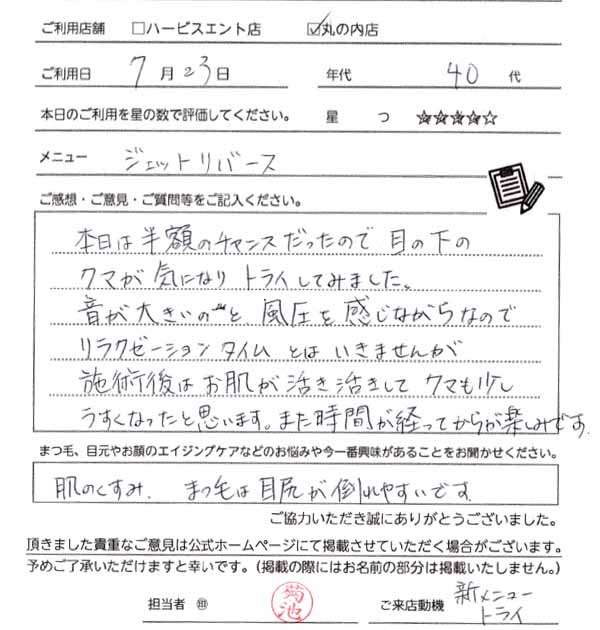 ご利用店舗 □ハービスエント店 ☑丸の内店
ご利用日 7月23日 年代 40代
本日のご利用を星の数で評価してください。 星 つ ★★★★☆
メニュー ジェットリバース
ご感想・ご意見・ご質問等をご記入ください。
本日は半額のチャンスだったので 目の下の
クマが気になり トライしてみました。
音が大きいのと、風圧を感じながらなので
リラクゼーションタイム とは いきませんが
施術後はお肌が活き活きして クマも少し
うすくなったと思います。また時間が経ってからが楽しみです。
まつ毛、目元やお顔のエイジングケアなどのお悩みや今一番興味があることをお聞かせください。
肌のくすみ、 まつ毛は目尻が倒れやすいです。
ご協力いただき誠にありがとうございました。
頂きました貴重なご意見は公式ホームページにて掲載させていただく場合がございます。
予めご了承いただけますと幸いです。(掲載の際にはお名前の部分は掲載いたしません。)
担当者 ㊞ 菊池 ご来店動機 新メニュー
トライ